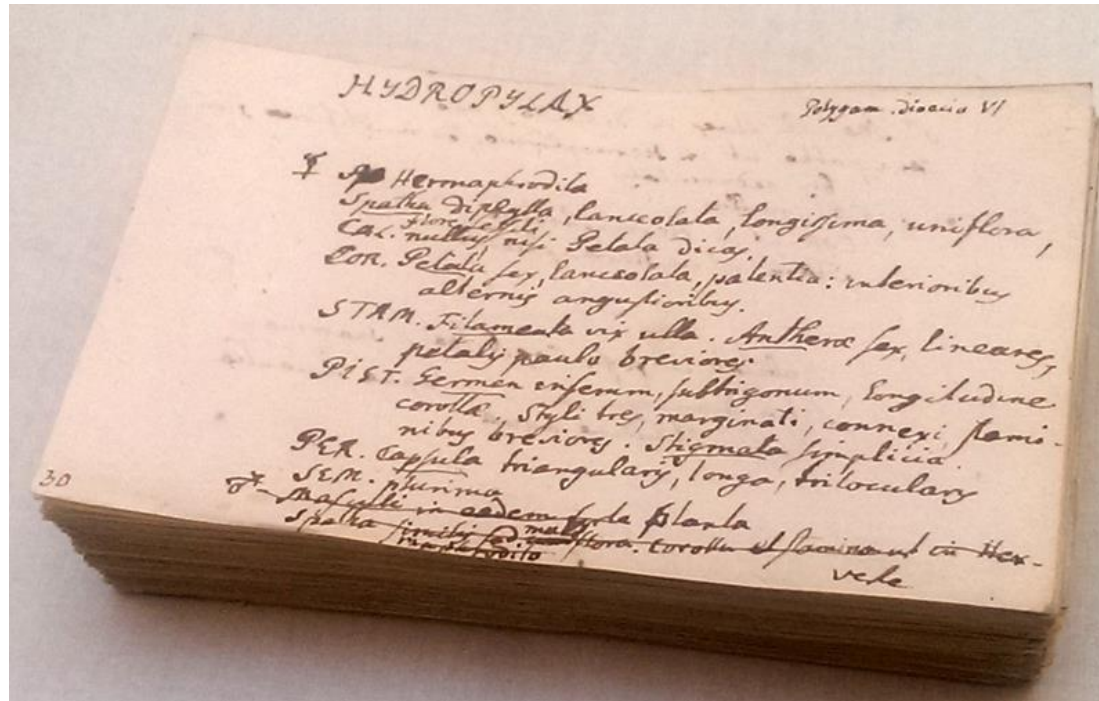 HYDROPYLAX
Polygam. dioecia VI
☿ Hermaphrodita
Spatha diphylla, lanceolata, longissima, uniflora,
flore sessili
CAL. nullus, nisi Petala dicas.
COR. Petala sex, lanceolata, patentia: interioribus
alternis angustioribus.
STAM. Filamenta vix ulla. Antheræ sex, lineares,
petalis paulo breviores.
PIST. Germen inferum, subtrigonum, longitudine
corollæ. Styli tres, marginati, connexi, stami-
nibus breviores. Stigmata simplicia.
PER. Capsula triangularis, longa, trilocularis
SEM. plurima
♂ Masculi in eadem planta
Spatha similis sed multiflora. Corolla et stamina ut in Her-
maphrodito
verte
30